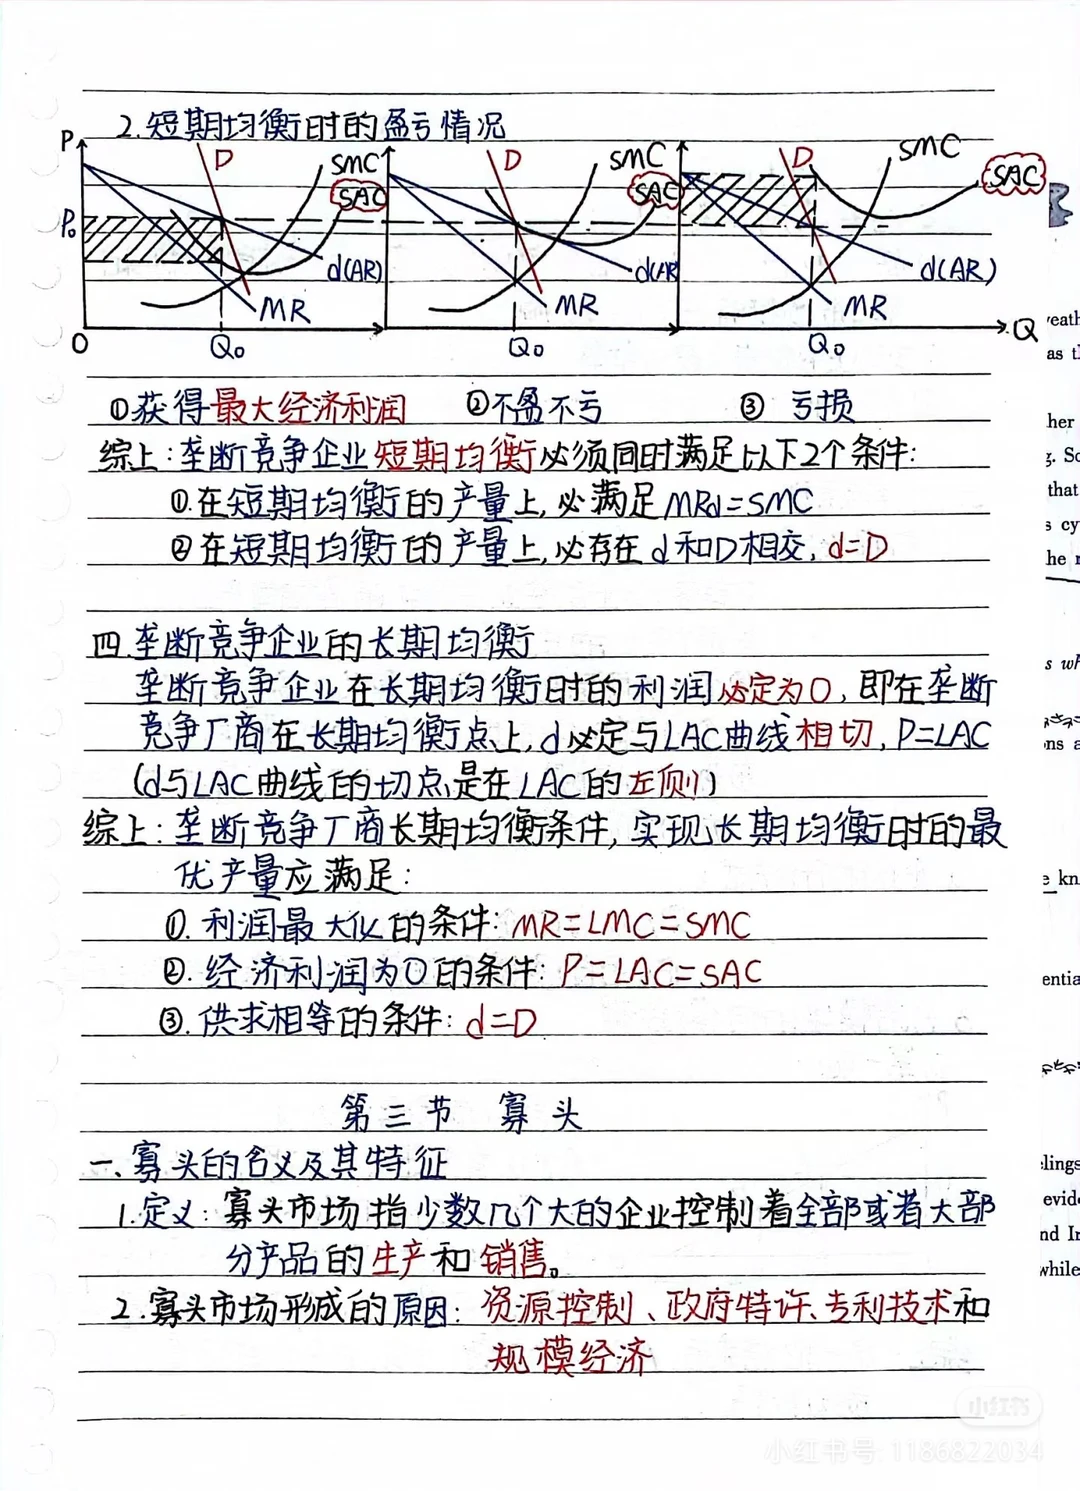 2.短期均衡时的盈亏情况
P D SMC D SMC D SMC
SAC SAC SAC
P₀
d(AR) d(AR d(AR)
MR MR MR
O Q₀ Q₀ Q₀ Q
①获得最大经济利润 ②不盈不亏 ③ 亏损
综上:垄断竞争企业短期均衡必须同时满足以下2个条件:
①.在短期均衡的产量上,必满足MRd=SMC
②在短期均衡的产量上,必存在d和D相交,d=D
四垄断竞争企业的长期均衡
垄断竞争企业在长期均衡时的利润必定为0,即在垄断
竞争厂商在长期均衡点上,d必定与LAC曲线相切,P=LAC
(d与LAC曲线的切点是在LAC的左侧)
综上:垄断竞争厂商长期均衡条件,实现长期均衡时的最
优产量应满足:
①.利润最大化的条件:MR=LMC=SMC
②.经济利润为0的条件:P=LAC=SAC
③.供求相等的条件:d=D
第三节 寡头
一、寡头的含义及其特征
1.定义:寡头市场指少数几个大的企业控制着全部或者大部
分产品的生产和销售。
2.寡头市场形成的原因:资源控制、政府特许、专利技术和
规模经济
as th
her
g. So
that
s cy
he r
s wh
ns a
e kn
entia
lings
evide
nd Ir
while
小红书
小红书号: 1186822034